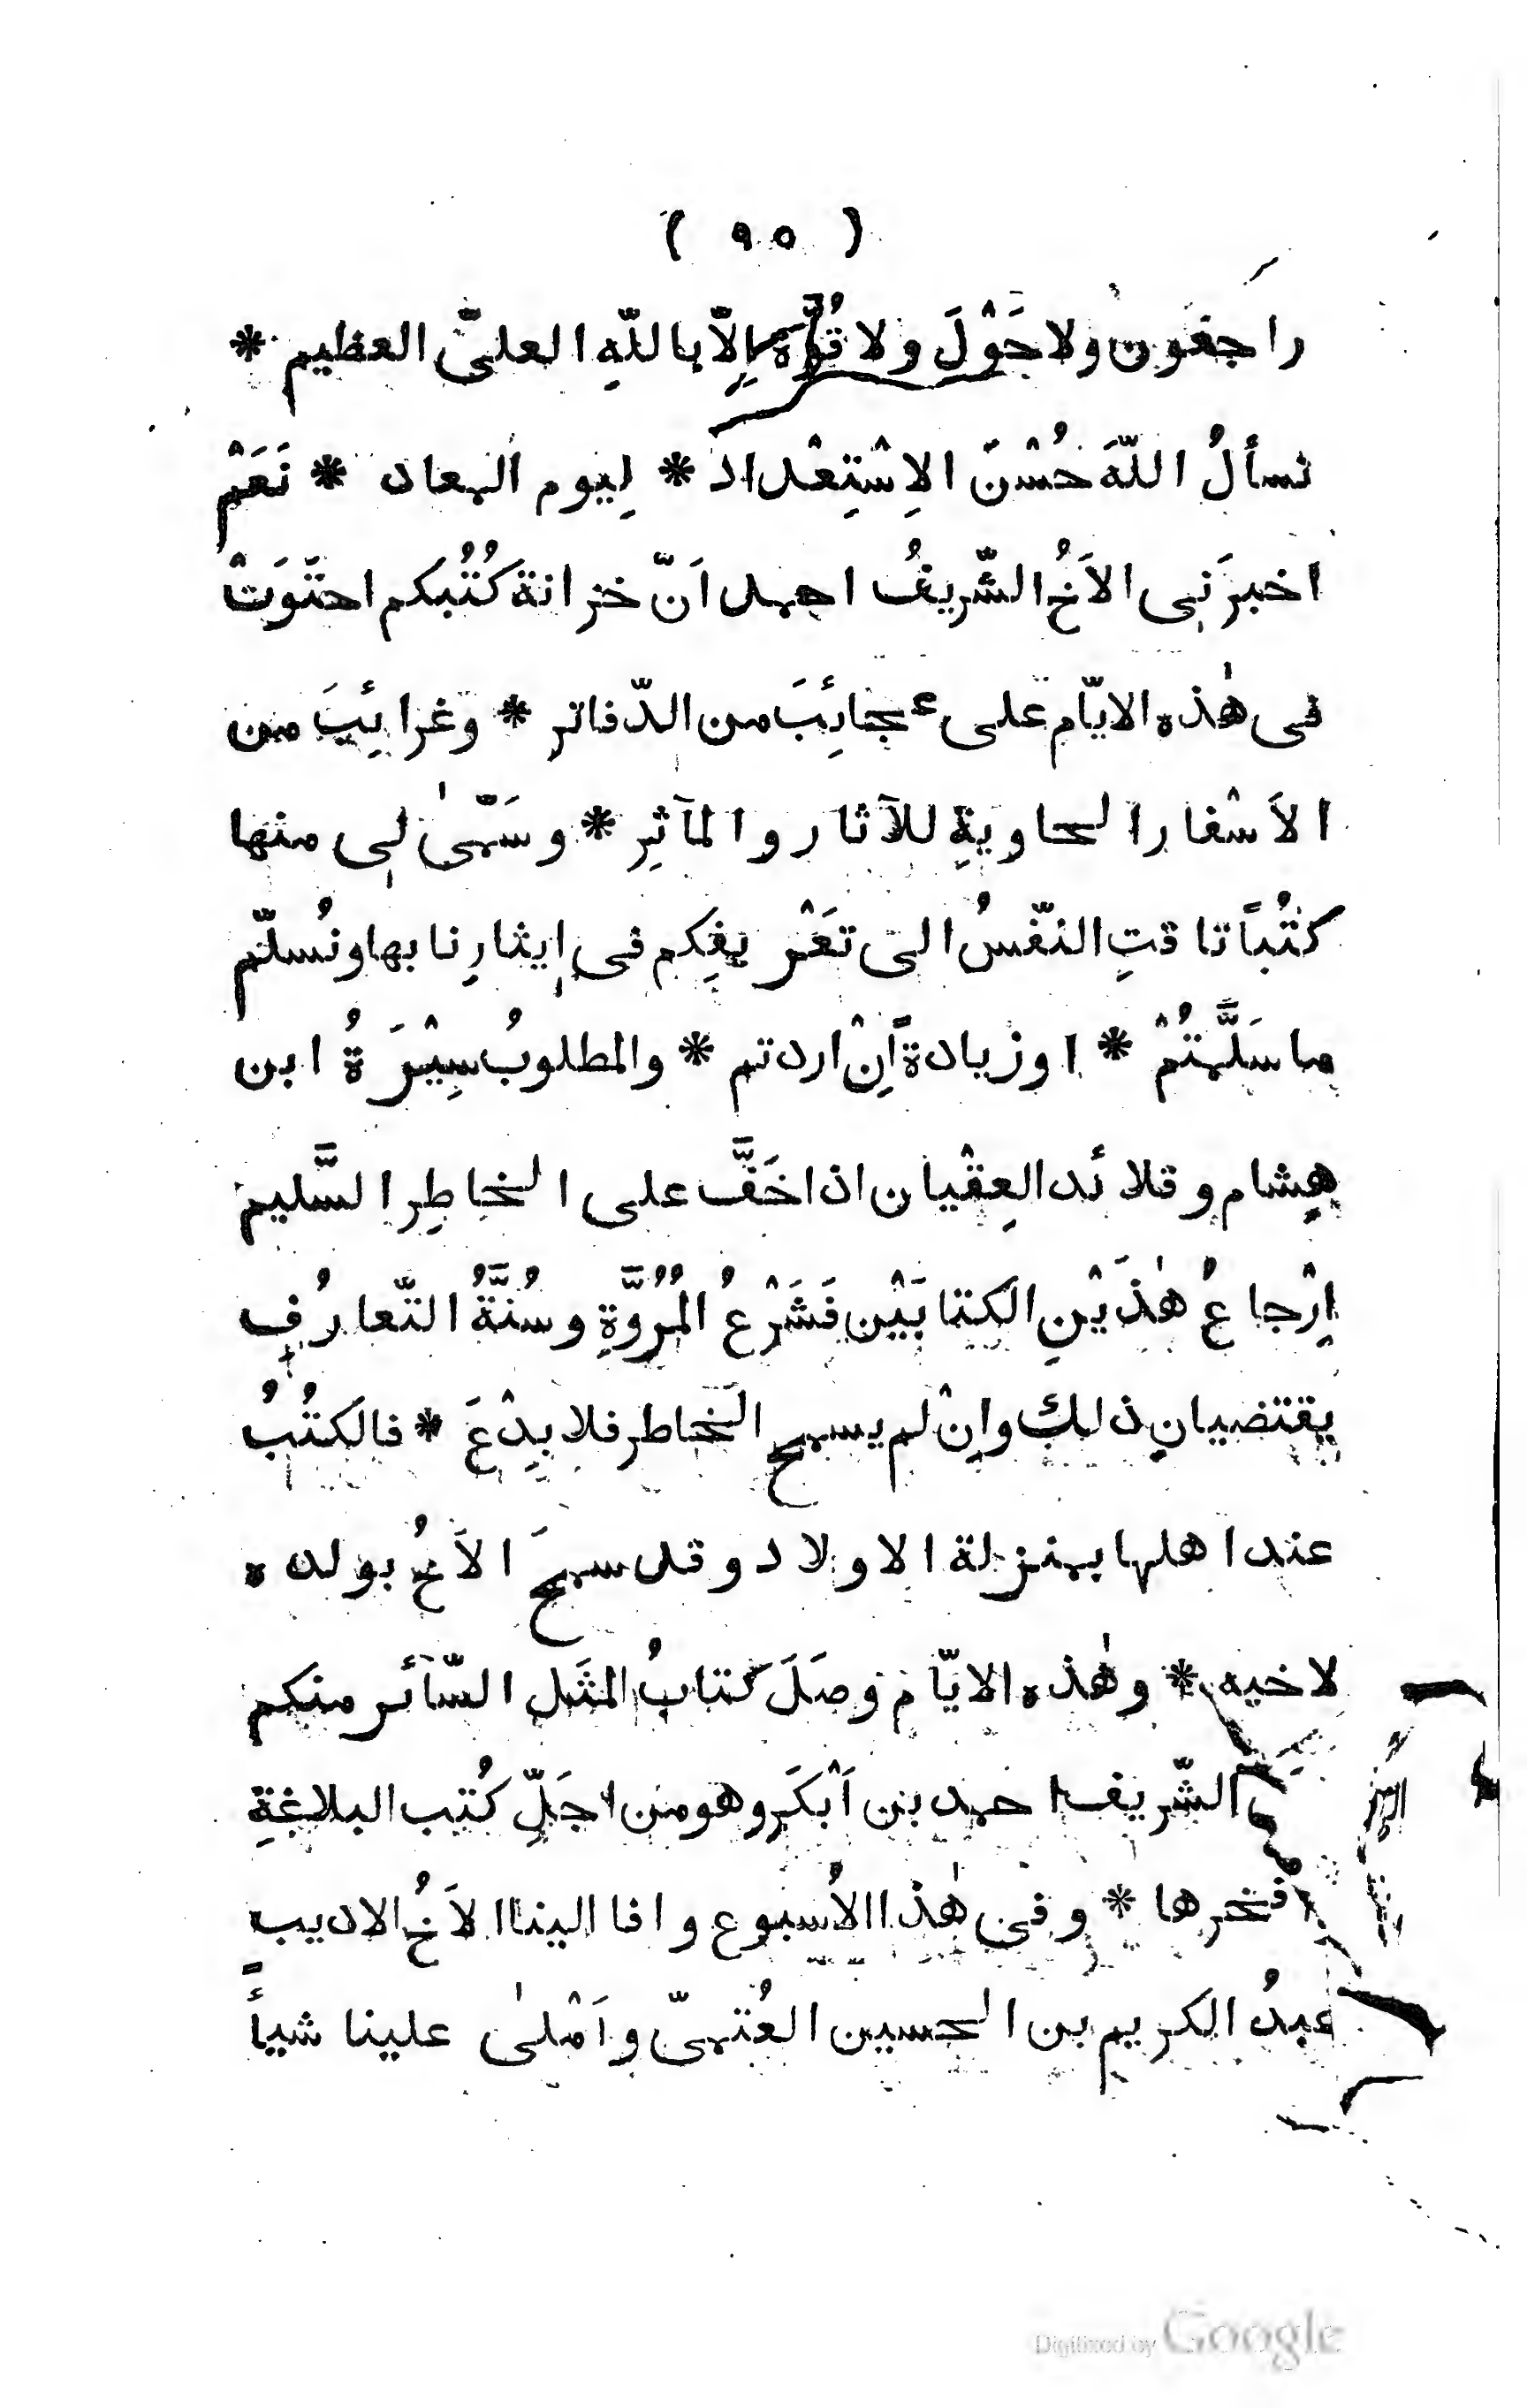 ( ٩٥ )
راجعون ولا حَوْلَ ولا قُوَّةَ اِلّا باللّهِ العلىِّ العظيم *
نسألُ اللّهَ حُسْنَ الاِسْتِعْداد * لِيوم المعاد * نَعَمْ
اخبرَنِى الاَخُ الشّريفُ احمد اَنّ خزانةَ كُتُبكم احتَوَتْ
فى هٰذه الايّام على عجائِبَ من الدّفاتر * وغرائِبَ من
الاَسْفار الحاويةِ للآثار والمآثِر * وسَمّىٰ لِى منها
كُتُباً تاقتِ النّفسُ الى تَعْريفِكم فى اِيثارِنا بها ونُسلّم
ما سَلَّمْتُمْ * اوزيادةً اِنْ اردتم * والمطلوبُ سِيْرَةُ ابن
هِشام وقلائد العِقْيان اذا خَفَّ على الخاطِر السَّليم
اِرْجاعُ هٰذَيْنِ الكتابَيْن فَشَرْعُ المُرُوَّةِ وسُنَّةُ التّعارُفِ
يقتضيانِ ذلك واِنْ لم يسمح الخاطر فلا بِدْعَ * فالكتُبُ
عند اهلها بمنزلة الاولاد وقد سمحَ الاَخُ بولده
لاخيه * وهٰذه الايّام وصَلَ كتابُ المثَلِ السّائر منكم
الشّريف احمد بن اَبْكَر وهو من اجَلِّ كُتب البلاغةِ
وافخرها * وفى هٰذا الاُسبوع وافا الينا الاَخُ الاديب
عبدُ الكريم بن الحسين العُتمىّ واَمْلىٰ علينا شيأً
Digitized by Google